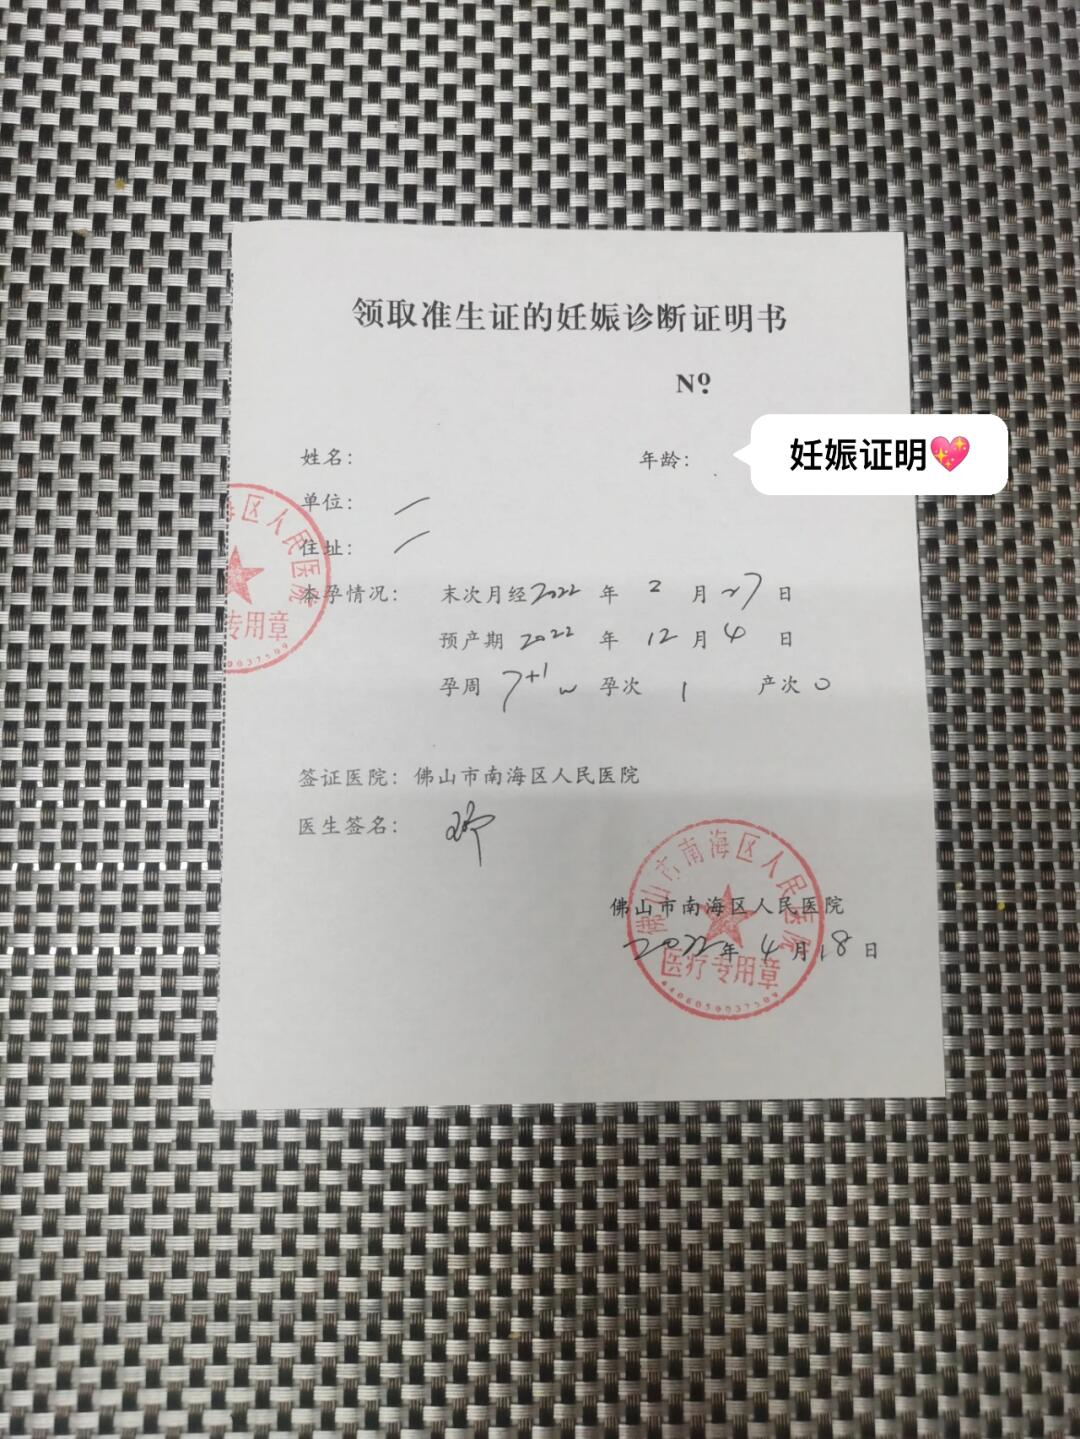 领取准生证的妊娠诊断证明书
Nº
姓名： 年龄：
妊娠证明💖
单位： 一
住址： 一
本孕情况： 末次月经2022 年 2 月 27 日
预产期 2022 年 12 月 4 日
孕周 7+1 w 孕次 1 产次 0
海区人民医院
专用章
0037509
签证医院：佛山市南海区人民医院
医生签名：
佛山市南海区人民医院
2022年 4 月 18 日
佛山市南海区人民医院
医疗专用章
4406050037509